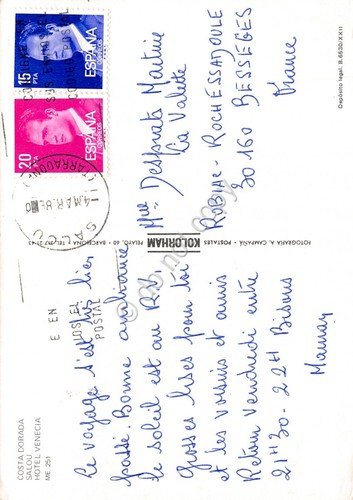 COSTA DORADA
SALOU
HOTEL VENECIA
ME. 251
Le voyage s'est très bien
passé. Bonne ambiance
le soleil est au RDV
Grosses bises pour toi
et les voisins et amis
Retour vendredi entre
21H30 - 22H Bisous
Maman
FOTOGRAFIA A. CAMPAÑA - POSTALES
KOLORHAM
PELAYO, 60 - BARCELONA - TEL.
15
PTA
ESPAÑA
CORREOS
20
PTA
ESPAÑA
CORREOS
SALOU
TARRAGONA
MAR
POSTAL
Mme Desprats Martine
La Valette
ROBIAC - ROCHESSADOULE
30 160 BESSÈGES
France
Depósito legal. B. 6530/XXII
do not copy